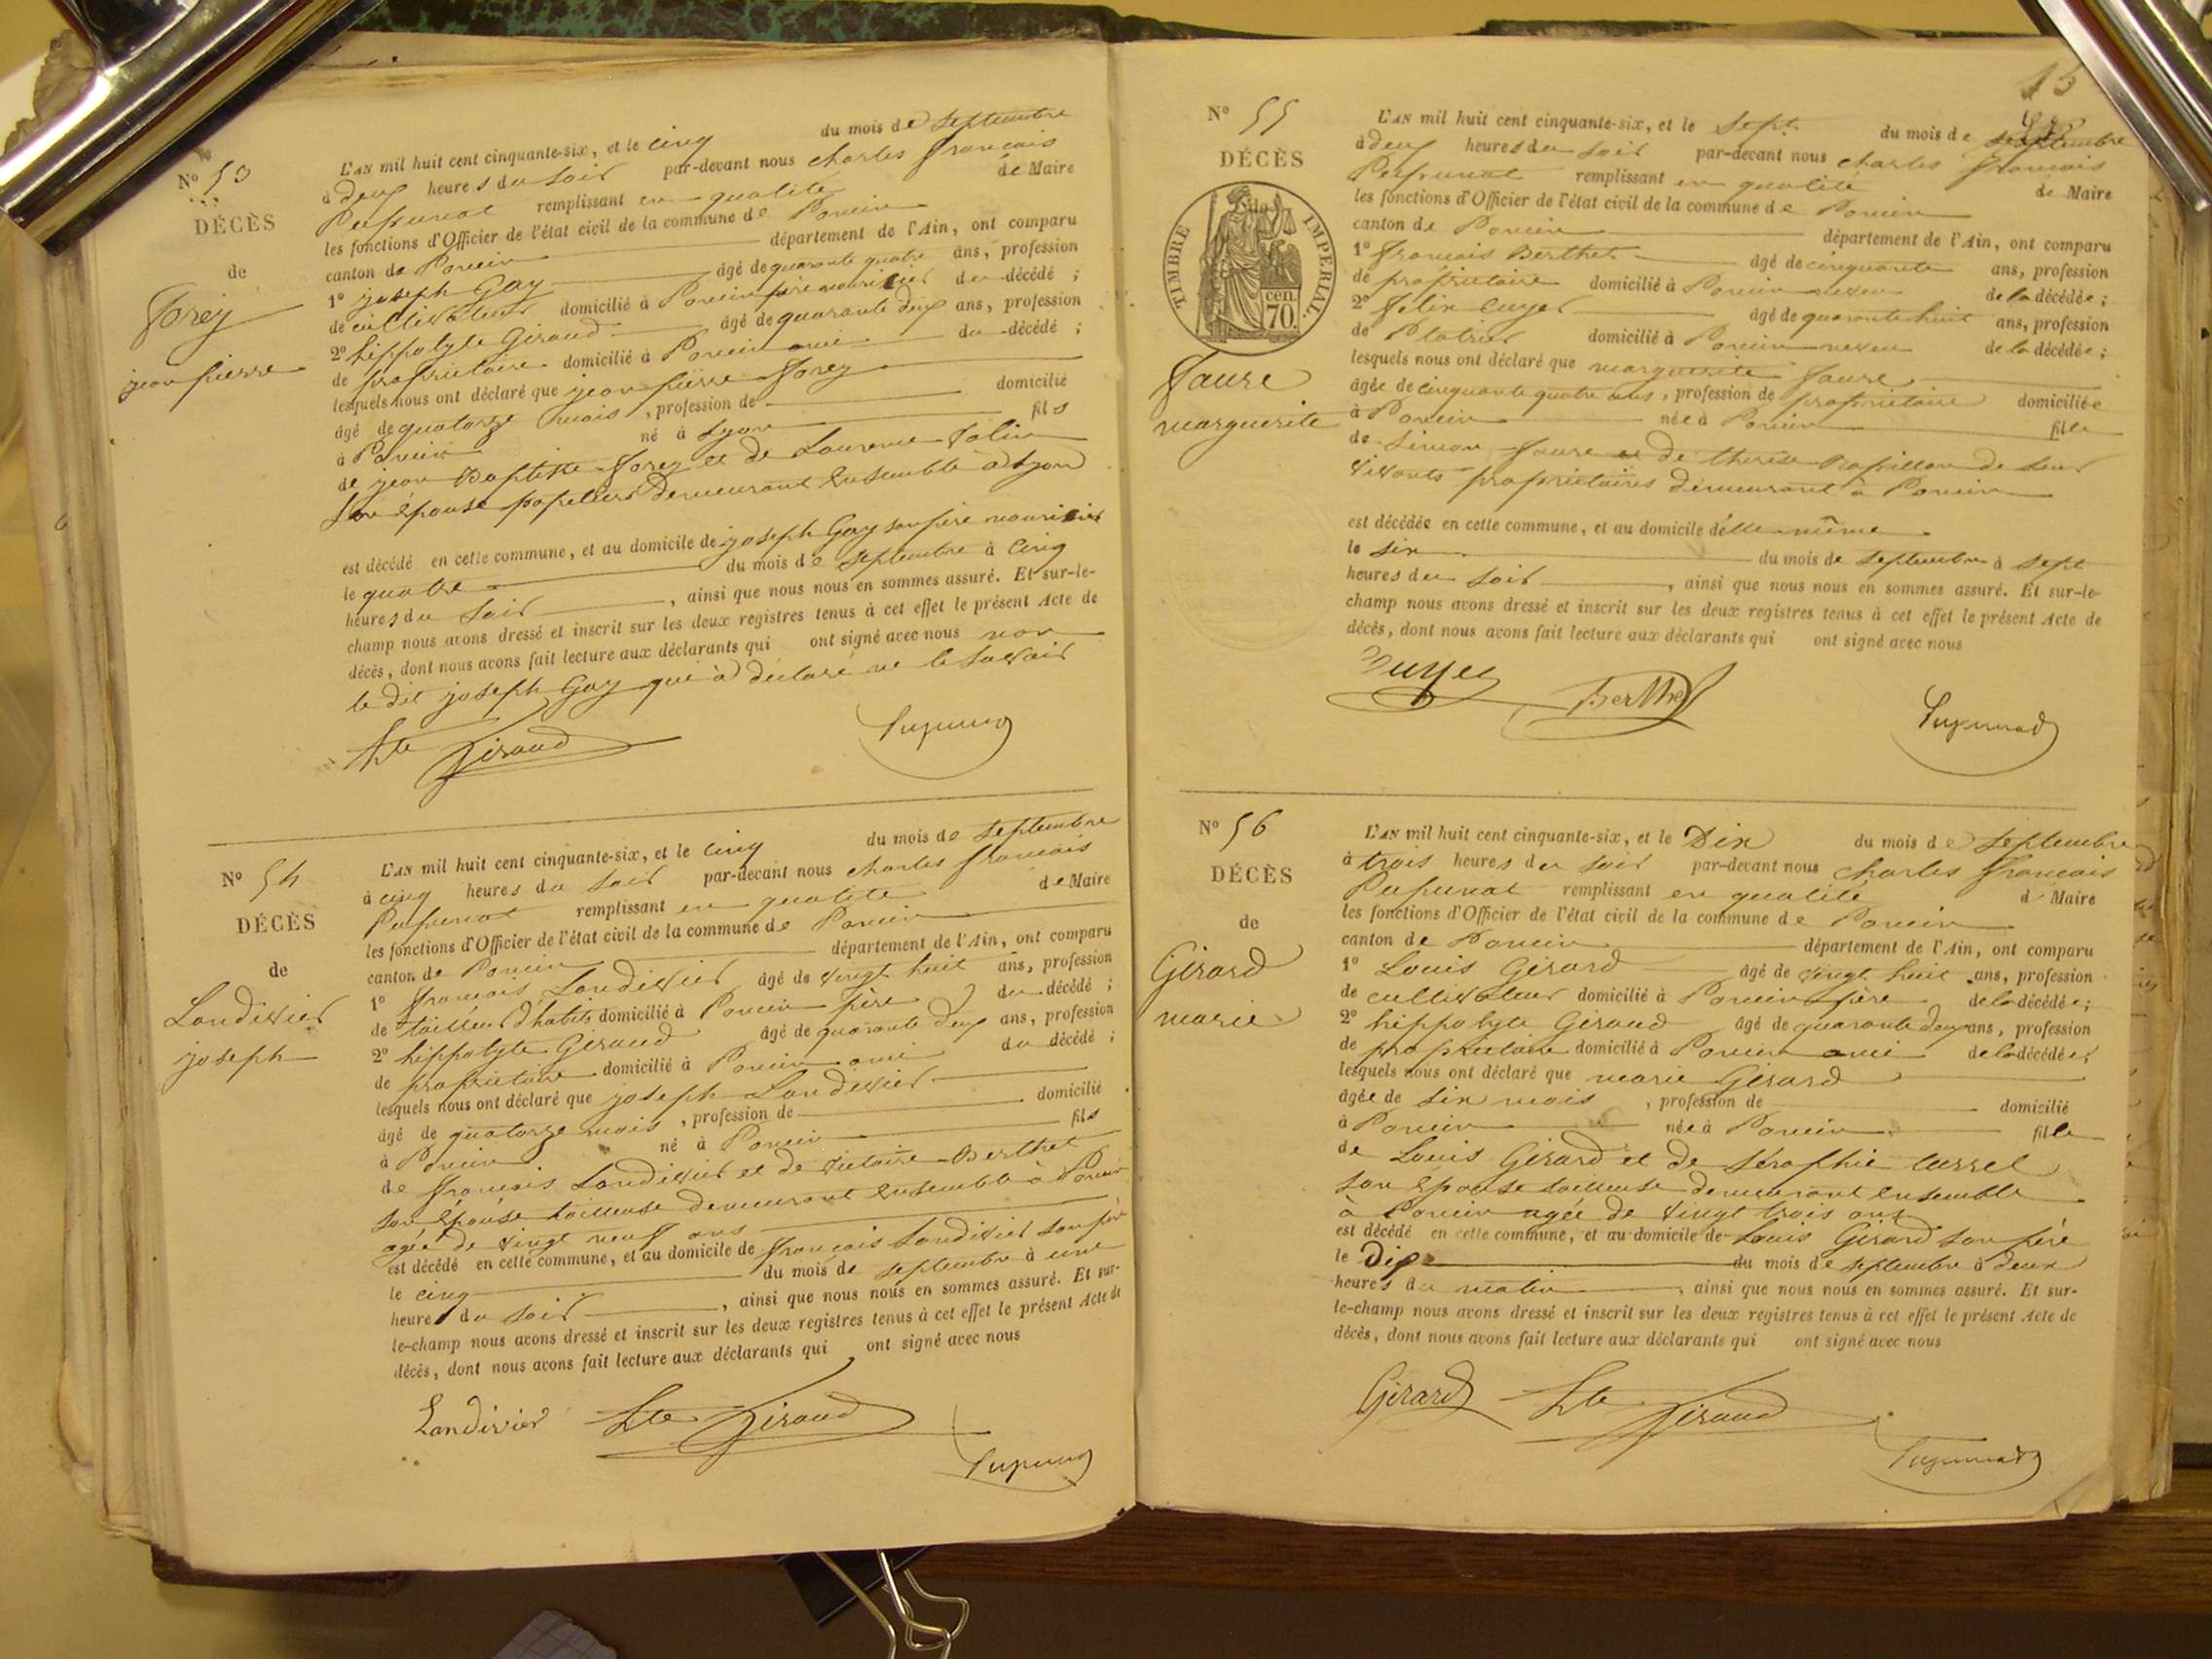 N° 53
DÉCÈS
de
Forey
jean pierre
L'AN mil huit cent cinquante-six, et le cinq du mois de septembre
à deux heures du soir par-devant nous charles françois
remplissant en qualité de Maire
les fonctions d'Officier de l'état civil de la commune de Poncin
canton de Poncin département de l'Ain, ont comparu
1° joseph Gay âgé de quarante quatre ans, profession
de cultivateur domicilié à Poncin père nouricier du décédé ;
2° hippolyte Giraud âgé de quarante deux ans, profession
de propriétaire domicilié à Poncin ami du décédé ;
lesquels nous ont déclaré que jean pierre Forey
âgé de quatorze mois, profession de domicilié
à Poncin né à Lyon fils
de jean Baptiste Forey et de Laurence
son épouse demeurant ensemble à Lyon
est décédé en cette commune, et au domicile de joseph Gay son père nouricier
le quatre du mois de septembre à cinq
heures du soir, ainsi que nous nous en sommes assuré. Et sur-le-
champ nous avons dressé et inscrit sur les deux registres tenus à cet effet le présent Acte de
décès, dont nous avons fait lecture aux déclarants qui ont signé avec nous non
le dit joseph Gay qui a déclaré ne le savoir
Hte Giraud
N° 54
DÉCÈS
de
Landivier
joseph
L'AN mil huit cent cinquante-six, et le cinq du mois de septembre
à cinq heures du soir par-devant nous charles françois
remplissant en qualité de Maire
les fonctions d'Officier de l'état civil de la commune de Poncin
canton de Poncin département de l'Ain, ont comparu
1° françois Landivier âgé de vingt huit ans, profession
de tailleur d'habits domicilié à Poncin père du décédé ;
2° hippolyte Giraud âgé de quarante deux ans, profession
de propriétaire domicilié à Poncin ami du décédé ;
lesquels nous ont déclaré que joseph Landivier
âgé de quatorze mois, profession de domicilié
à Poncin né à Poncin fils
de françois Landivier et de victoire Berthet
son épouse tailleuse demeurant ensemble à Poncin
agée de vingt neuf ans
est décédé en cette commune, et au domicile de françois Landivier son père
le cinq du mois de septembre à une
heure du soir, ainsi que nous nous en sommes assuré. Et sur-
le-champ nous avons dressé et inscrit sur les deux registres tenus à cet effet le présent Acte de
décès, dont nous avons fait lecture aux déclarants qui ont signé avec nous
Landivier Hte Giraud
N° 55
DÉCÈS
de
TIMBRE IMPERIAL
70 cen
Faure
marguerite
L'AN mil huit cent cinquante-six, et le sept du mois de septembre
à deux heures du soir par-devant nous charles françois
remplissant en qualité de Maire
les fonctions d'Officier de l'état civil de la commune de Poncin
canton de Poncin département de l'Ain, ont comparu
1° françois Berthet âgé de cinquante ans, profession
de propriétaire domicilié à Poncin neveu de la décédée ;
2° felix Cuyer âgé de quarante huit ans, profession
de Platrier domicilié à Poncin neveu de la décédée ;
lesquels nous ont déclaré que marguerite faure
âgée de cinquante quatre ans, profession de propriétaire domiciliée
à Poncin née à Poncin fille
de Simon faure et de therèse Papillon de leur
vivants propriétaires demeurant à Poncin
est décédée en cette commune, et au domicile d'elle même
le six du mois de septembre à sept
heures du soir, ainsi que nous nous en sommes assuré. Et sur-le-
champ nous avons dressé et inscrit sur les deux registres tenus à cet effet le présent Acte de
décès, dont nous avons fait lecture aux déclarants qui ont signé avec nous
Berthet
N° 56
DÉCÈS
de
Girard
marie
L'AN mil huit cent cinquante-six, et le Dix du mois de septembre
à trois heures du soir par-devant nous charles françois
remplissant en qualité d Maire
les fonctions d'Officier de l'état civil de la commune de Poncin
canton de Poncin département de l'Ain, ont comparu
1° Louis Girard âgé de vingt huit ans, profession
de cultivateur domicilié à Poncin père de la décédée ;
2° hippolyte Giraud âgé de quarante deux ans, profession
de propriétaire domicilié à Poncin ami de la décédée ;
lesquels nous ont déclaré que marie Girard
âgée de six mois, profession de domicilié
à Poncin née à Poncin fille
de Louis Girard et de Séraphie
son épouse tailleuse demeurant ensemble
à Poncin agée de vingt trois ans
est décédé en cette commune, et au domicile de Louis Girard son père
le Dix du mois de septembre à deux
heures du matin, ainsi que nous nous en sommes assuré. Et sur-
le-champ nous avons dressé et inscrit sur les deux registres tenus à cet effet le présent Acte de
décès, dont nous avons fait lecture aux déclarants qui ont signé avec nous
Girard Hte Giraud